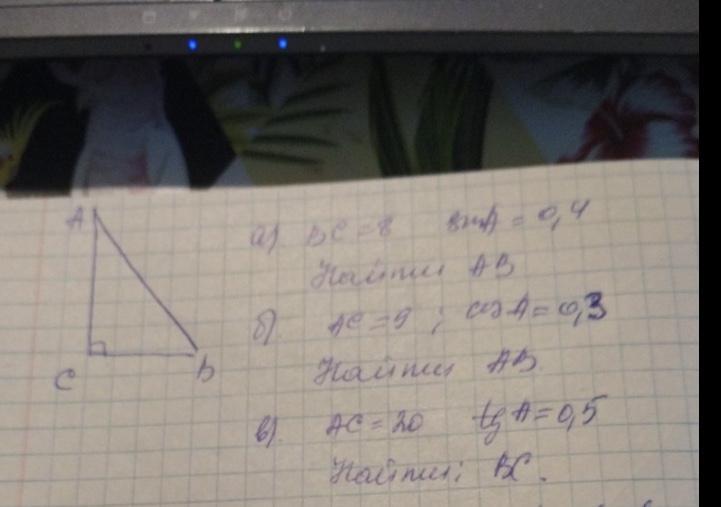 A
C
B
а) BC = 8 sinA = 0,4
Найти AB
б). AC = 9 ; cosA = 0,3
Найти AB
в). AC = 20 tgA = 0,5
Найти: BC.